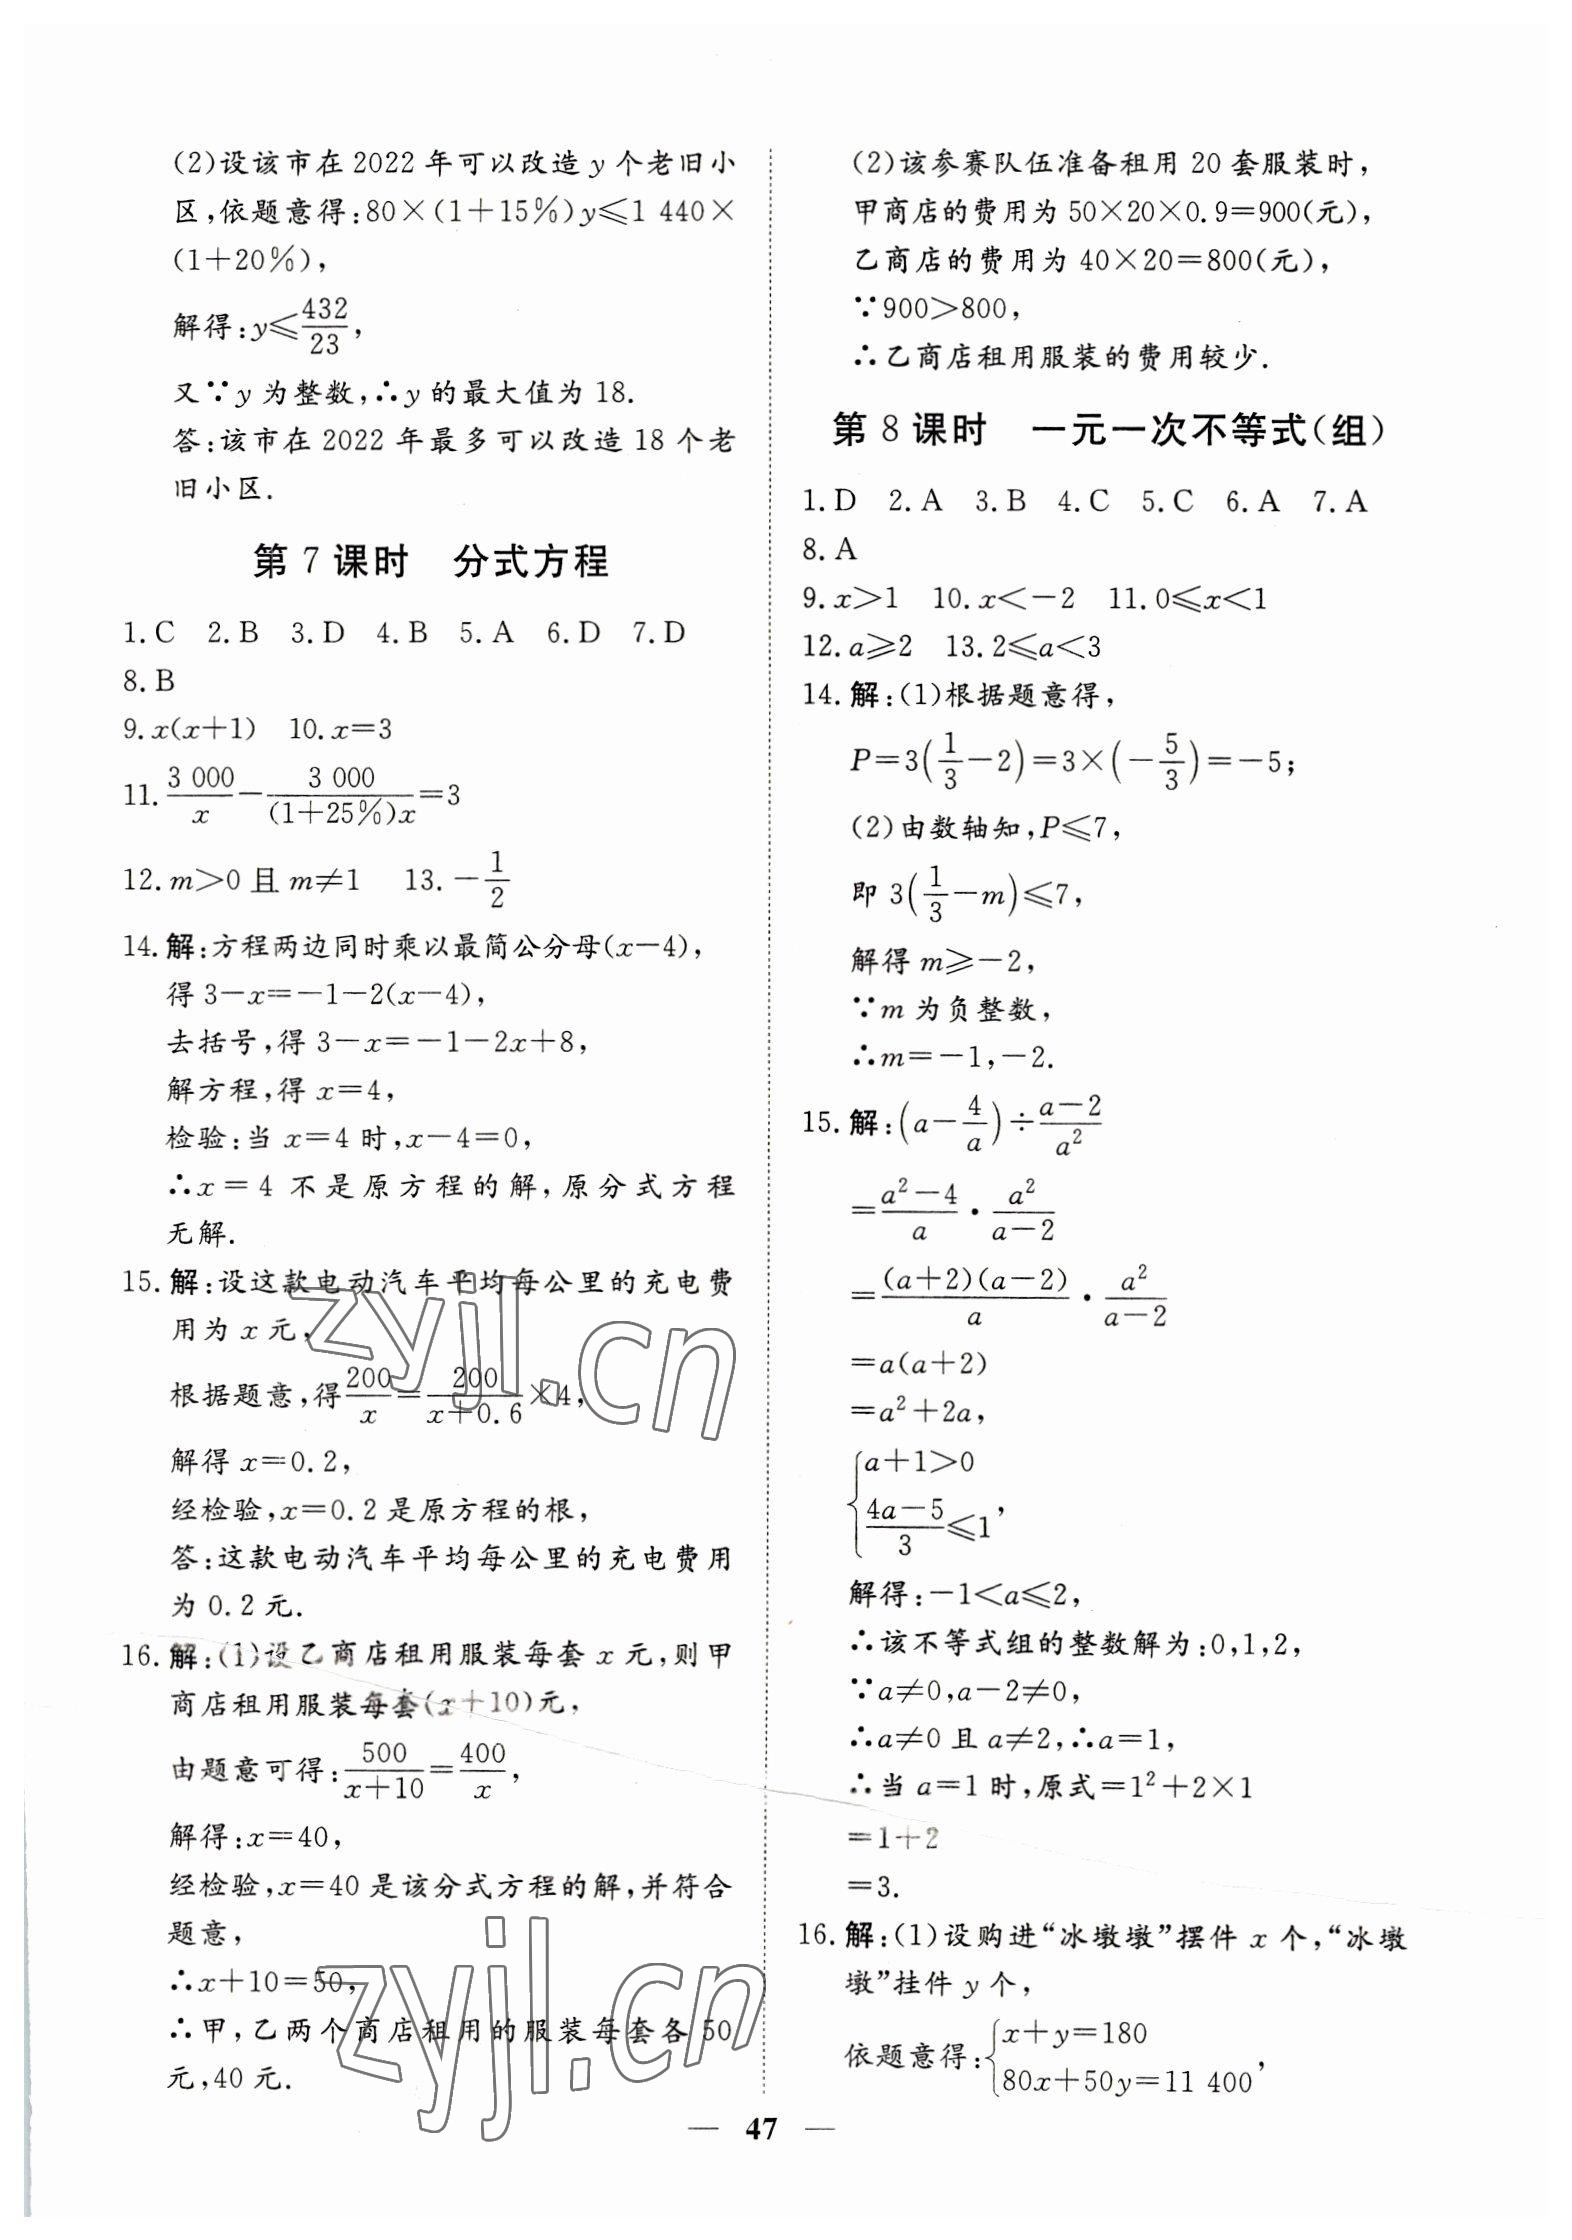 (2)设该市在 2022 年可以改造 y 个老旧小
区,依题意得:80×(1+15%)y≤1 440×
(1+20%),
解得:y≤432/23,
又∵y 为整数,∴y 的最大值为 18.
答:该市在 2022 年最多可以改造 18 个老
旧小区.
第 7 课时　分式方程
1.C　2.B　3.D　4.B　5.A　6.D　7.D
8.B
9.x(x+1)　10.x=3
11.3 000/x－3 000/((1+25%)x)=3
12.m>0 且 m≠1　13.－1/2
14.解:方程两边同时乘以最简公分母(x－4),
得 3－x=－1－2(x－4),
去括号,得 3－x=－1－2x+8,
解方程,得 x=4,
检验:当 x=4 时,x－4=0,
∴x=4 不是原方程的解,原分式方程
无解.
15.解:设这款电动汽车平均每公里的充电费
用为 x 元,
根据题意,得200/x=200/(x+0.6)×4,
解得 x=0.2,
经检验,x=0.2 是原方程的根,
答:这款电动汽车平均每公里的充电费用
为 0.2 元.
16.解:(1)设乙商店租用服装每套 x 元,则甲
商店租用服装每套(x+10)元,
由题意可得:500/(x+10)=400/x,
解得:x=40,
经检验,x=40 是该分式方程的解,并符合
题意,
∴x+10=50,
∴甲,乙两个商店租用的服装每套各 50
元,40 元.
(2)该参赛队伍准备租用 20 套服装时,
甲商店的费用为 50×20×0.9=900(元),
乙商店的费用为 40×20=800(元),
∵900>800,
∴乙商店租用服装的费用较少.
第 8 课时　一元一次不等式(组)
1.D　2.A　3.B　4.C　5.C　6.A　7.A
8.A
9.x>1　10.x<－2　11.0≤x<1
12.a≥2　13.2≤a<3
14.解:(1)根据题意得,
P=3(1/3－2)=3×(－5/3)=－5;
(2)由数轴知,P≤7,
即 3(1/3－m)≤7,
解得 m≥－2,
∵m 为负整数,
∴m=－1,－2.
15.解:(a－4/a)÷(a－2)/a²
=(a²－4)/a·a²/(a－2)
=(a+2)(a－2)/a·a²/(a－2)
=a(a+2)
=a²+2a,
{a+1>0
(4a－5)/3≤1,
解得:－1<a≤2,
∴该不等式组的整数解为:0,1,2,
∵a≠0,a－2≠0,
∴a≠0 且 a≠2,∴a=1,
∴当 a=1 时,原式=1²+2×1
=1+2
=3.
16.解:(1)设购进“冰墩墩”摆件 x 个,“冰墩
墩”挂件 y 个,
依题意得:{x+y=180
80x+50y=11 400,
— 47 —
zyjl.cn
zyjl.cn